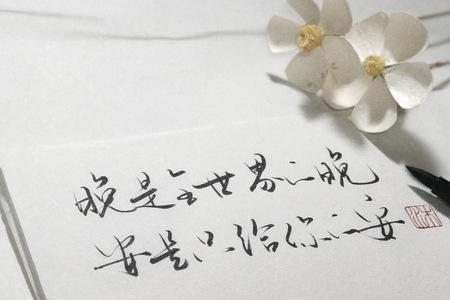 晚是全世界的晚
安是只给你的安